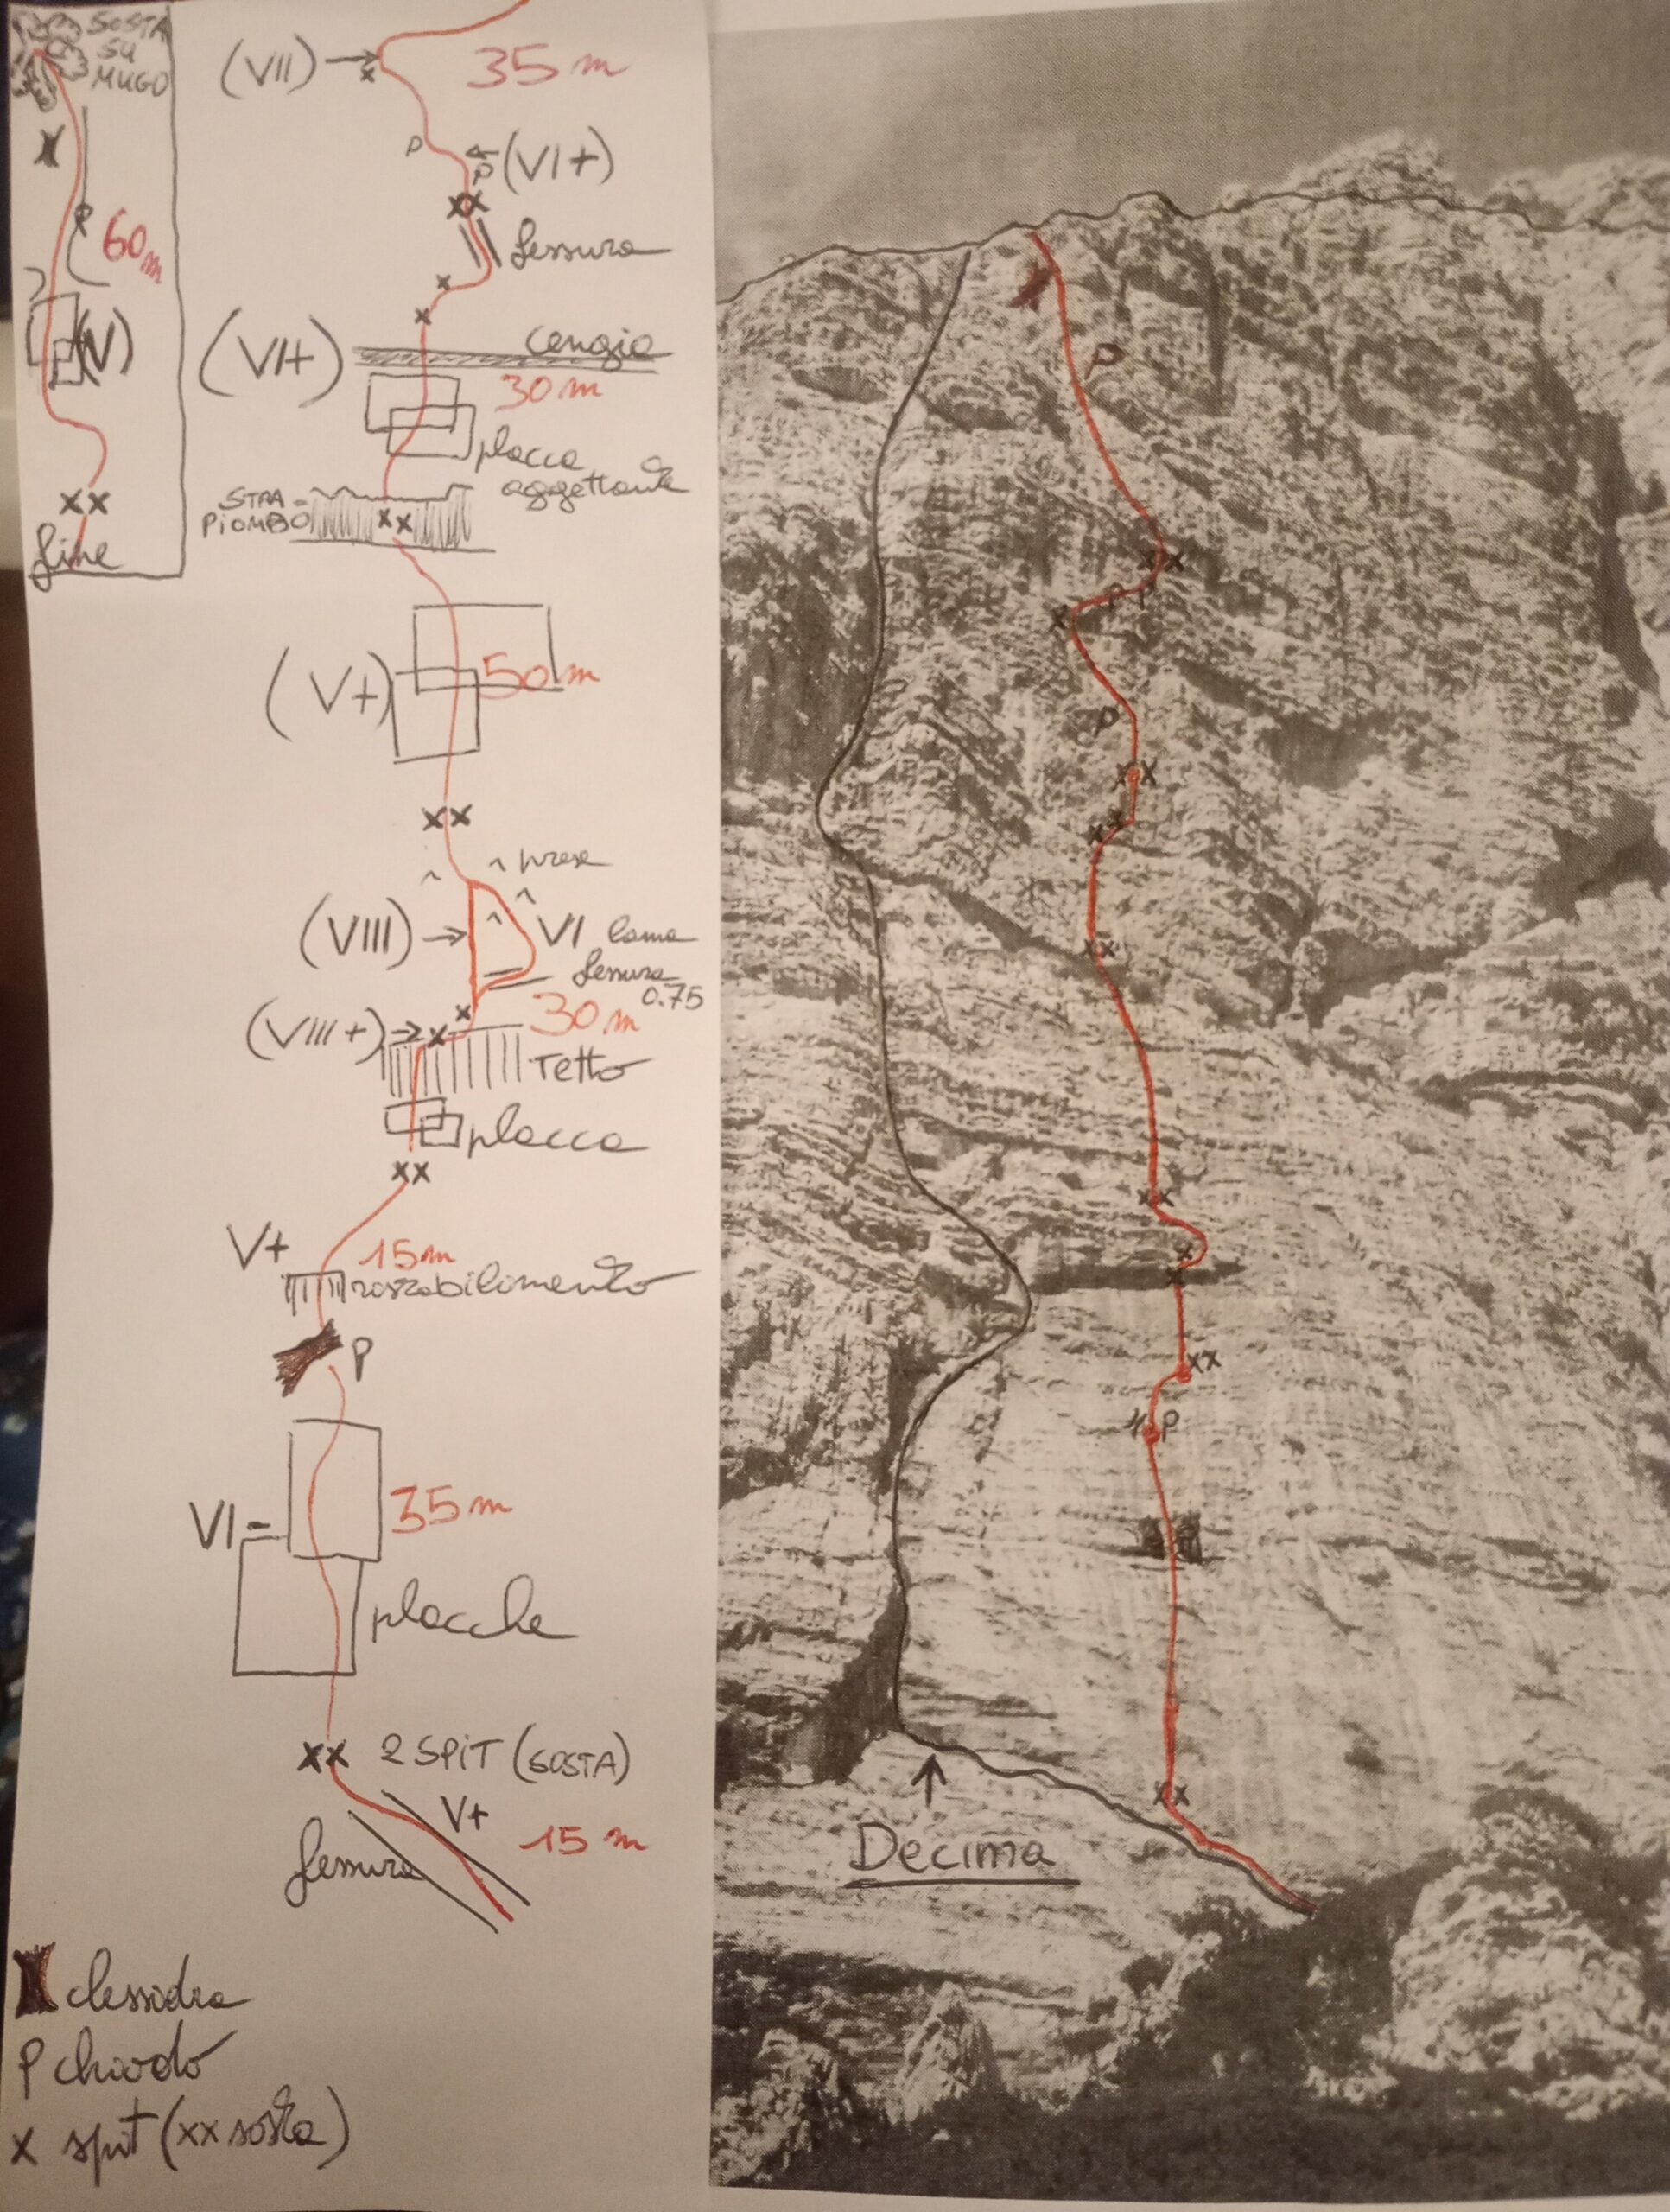 SOSTA
SU
MUGO
P
60m
(V)
xx
fine
(VII) →
x
35 m
P
P
(VI+)
xx
fessura
x
x
(VI+)
cengia
30 m
placca
aggettante
STRA-
PIOMBO
xx
(V+)
50 m
xx
prese
(VIII) →
VI lama
fessura
0.75
x
(VIII+) → x
30 m
Tetto
placca
xx
V+
15 m
P
VI-
35 m
placche
xx 2 SPIT (SOSTA)
V+
15 m
fessura
clessidra
P chiodo
x spit (xx sosta)
P
xx
P P
x
P
xx
xx
xx
xx
x
x
xx
P
xx
Decima